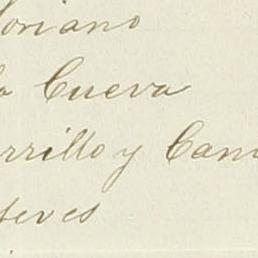 oriano
o Cueva
rrillo y Cam
teves